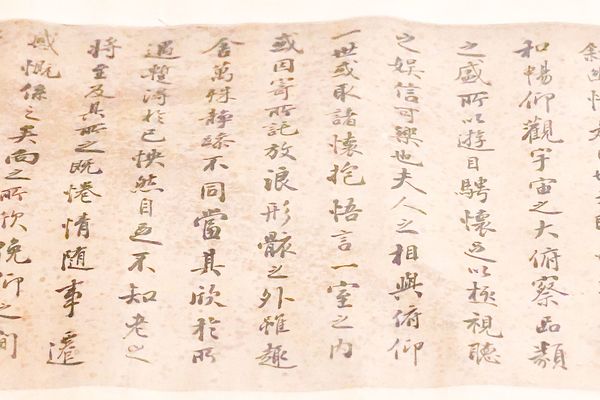 和暢仰觀宇宙之大俯察品類
之盛所以遊目騁懷足以極視聽
之娛信可樂也夫人之相與俯仰
一世或取諸懷抱悟言一室之內
或因寄所託放浪形骸之外雖趣
舍萬殊靜躁不同當其欣於所
遇蹔得於己怏然自足不知老之
將至及其所之既惓情隨事遷
感慨係之矣向之所欣俛仰之間